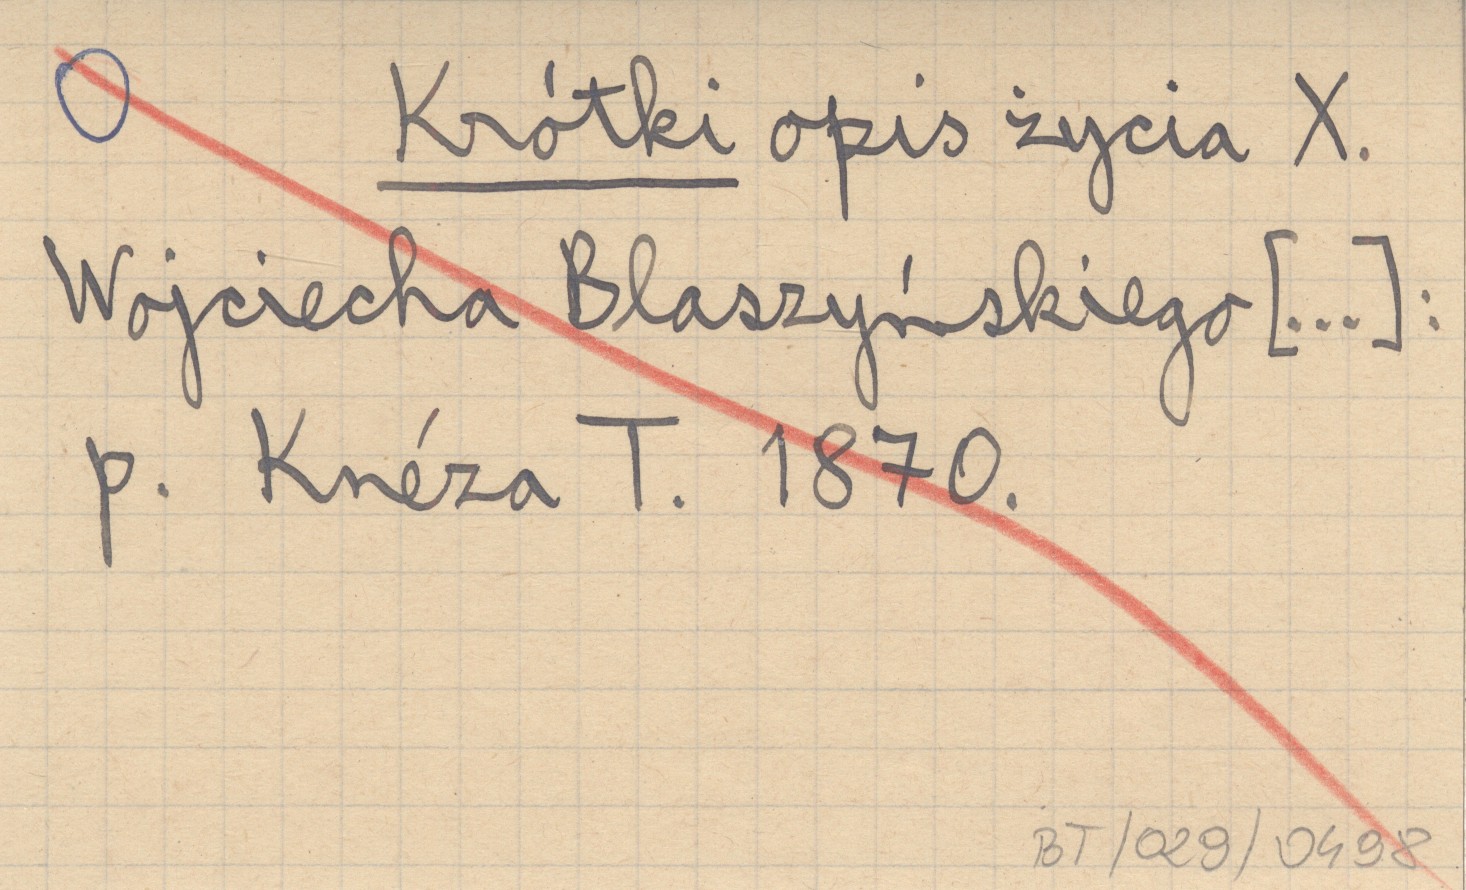 Krótki opis życia X.
Wojciecha Blaszyńskiego [...]:
p. Knéza T. 1870.
BT/029/0498